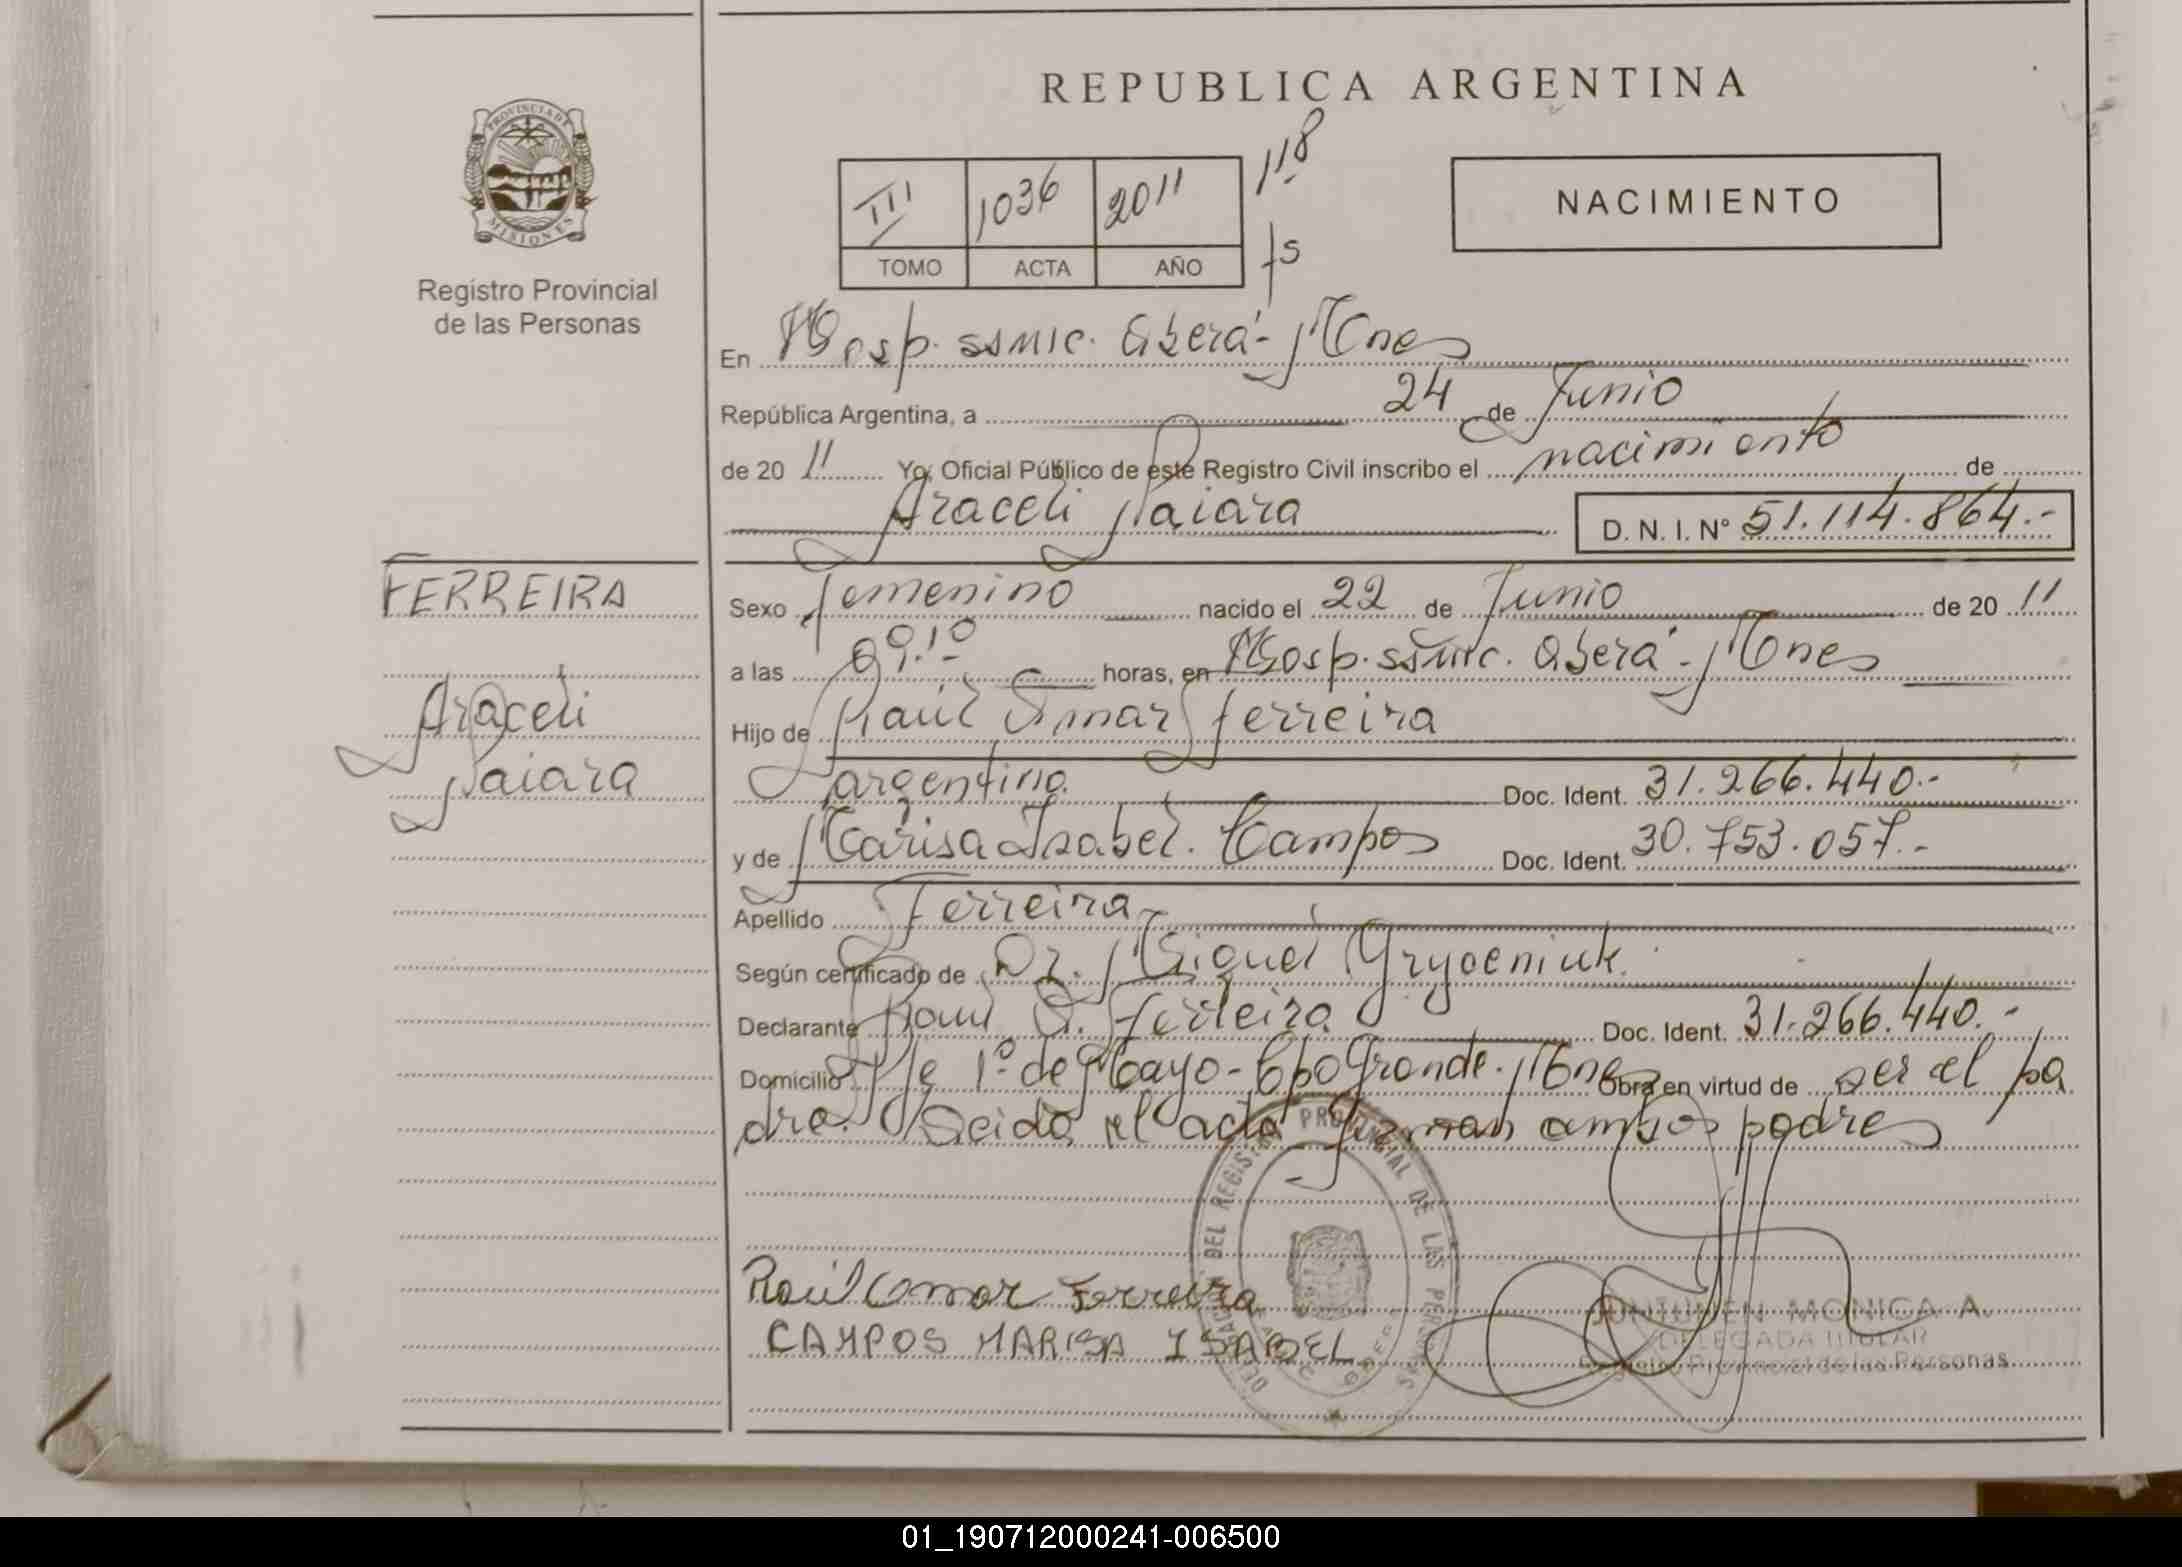 REPUBLICA ARGENTINA
PROVINCIA DE
MISIONES
Registro Provincial
de las Personas
III 1036 2011 118
TOMO ACTA AÑO fs
NACIMIENTO
En Hosp. ssmic. Oberá - Mnes
República Argentina, a 24 de Junio
de 20 11 Yo, Oficial Público de este Registro Civil inscribo el nacimiento de
Araceli Naiara D. N. I. N° 51.114.864.-
FERREIRA
Araceli
Naiara
Sexo femenino nacido el 22 de Junio de 20 11
a las 09.10 horas, en Hosp. ssmic. Oberá - Mnes
Hijo de Raúl Omar Ferreira
argentino Doc. Ident. 31.266.440.-
y de Marisa Isabel Campos Doc. Ident. 30.753.057.-
Apellido Ferreira
Según certificado de Dr. Miguel
Declarante Raul O. Ferreira Doc. Ident. 31.266.440.-
Domicilio 1º de Mayo - Cpo Grande - Mnes Obra en virtud de ser el pa
dre. Leida el acta firman ambos padres
Raúl Omar Ferreira
CAMPOS MARISA ISABEL
DEL REGISTRO PROVINCIAL DE LAS PERSONAS
MONICA A.
DELEGADA TITULAR
Registro Provincial de las Personas
01_190712000241-006500